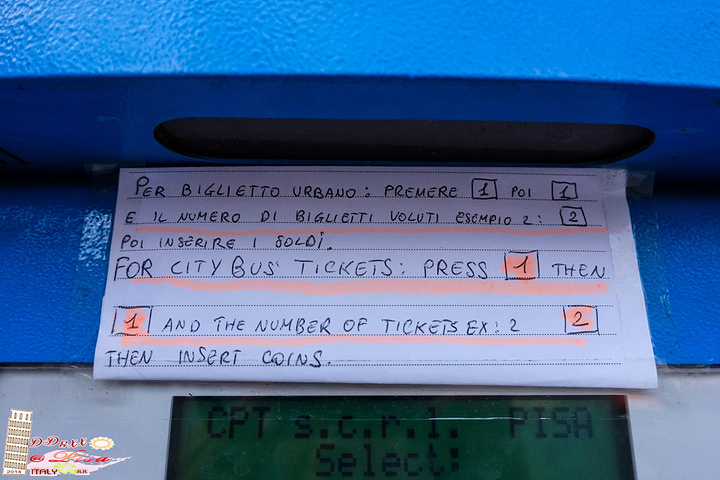 PER BIGLIETTO URBANO: PREMERE 1 POI 1
E IL NUMERO DI BIGLIETTI VOLUTI ESEMPIO 2: 2
POI INSERIRE I SOLDI.
FOR CITY BUS TICKETS: PRESS 1 THEN
1 AND THE NUMBER OF TICKETS EX: 2 2
THEN INSERT COINS.
CPT s.c.r.l. PISA
Select:
DDRXX
@ Pisa
2014 ITALY